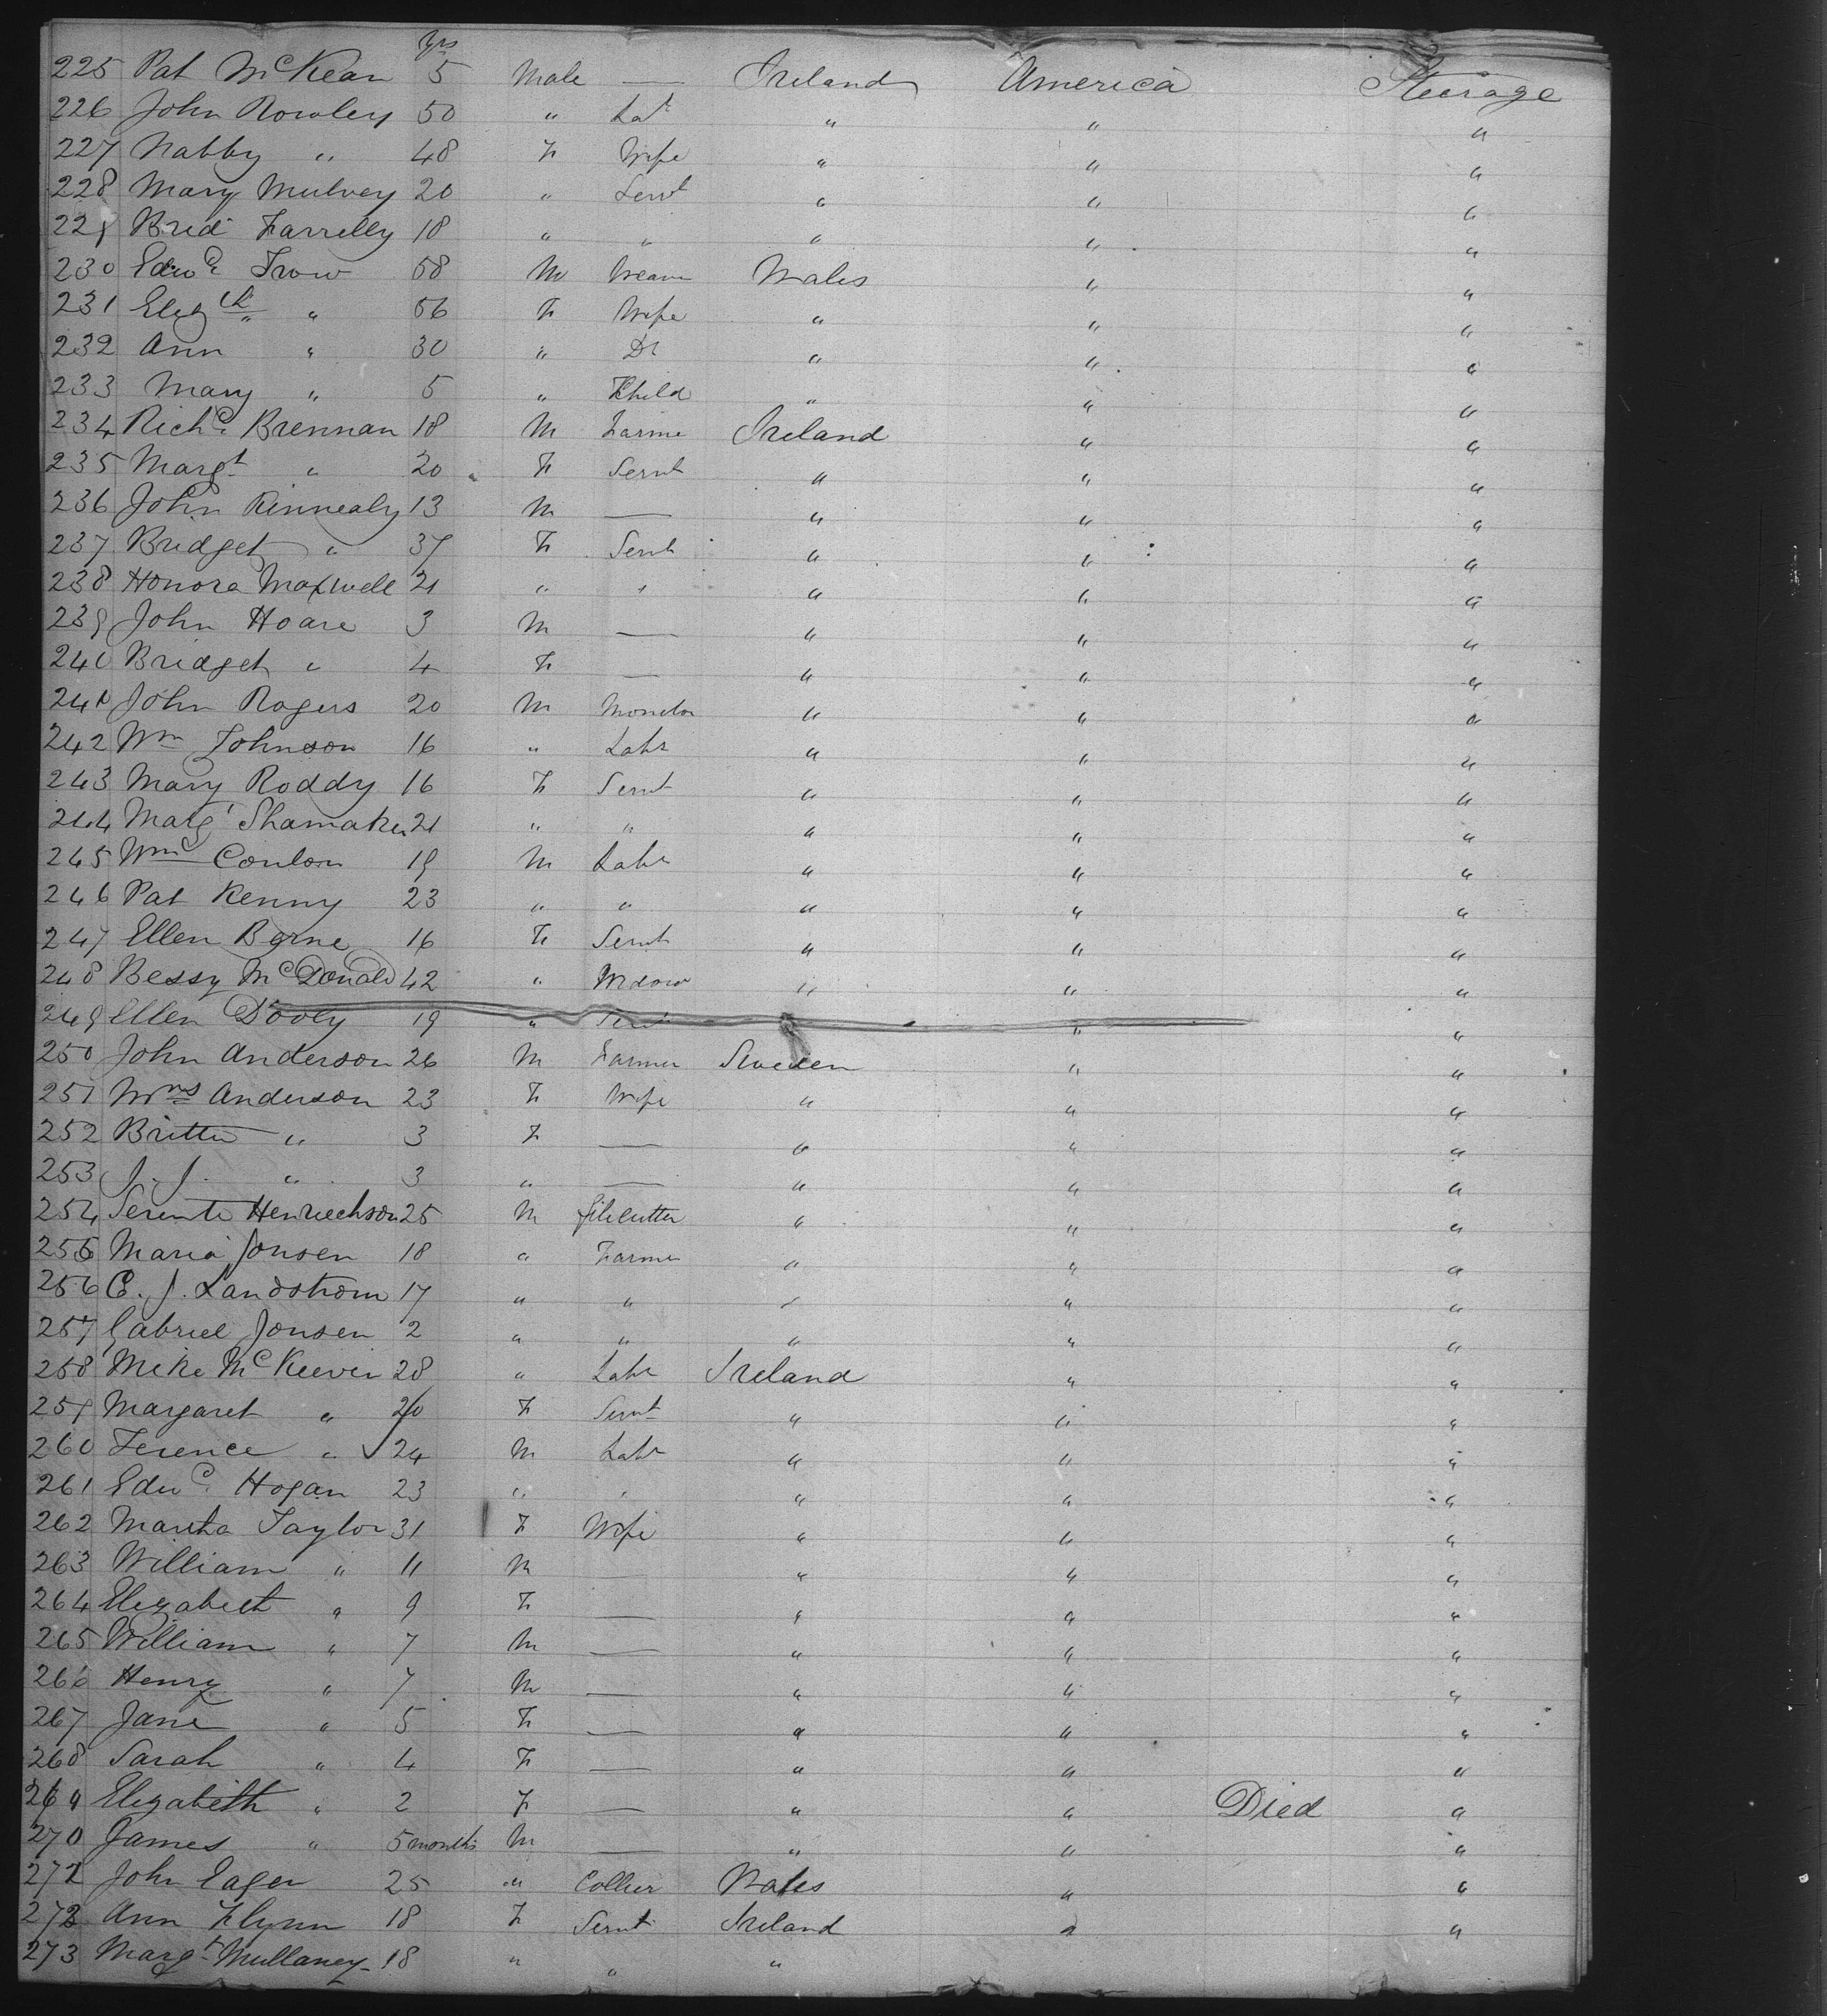 Yrs
225 Pat McKean 5 Male — Ireland America Steerage
226 John Rowley 50 " Labr " " "
227 Nabby " 48 F Wife " " "
228 Mary Mulvey 20 " Servt " " "
229 Brid Farrelly 18 " " " " "
230 Edwd Trow 58 M Weaver Wales " "
231 Elizth " 56 F Wife " " "
232 Ann " 30 " Dr " " "
233 Mary " 5 " Child " " "
234 Richd Brennan 18 M Farme Ireland " "
235 Margt " 20 F Servt " " "
236 John Kinnealy 13 M — " " "
237 Bridget " 37 F Servt " " "
238 Honora Maxwell 21 " " " " "
239 John Hoare 3 M — " " "
240 Bridget " 4 F — " " "
241 John Rogers 20 M " " "
242 Wm Johnson 16 " Labr " " "
243 Mary Roddy 16 F Servt " " "
244 Margt Shamaker 21 " " " " "
245 Wm Conlon 19 M Labr " " "
246 Pat Kenny 23 " " " " "
247 Ellen Byrne 16 F Servt " " "
248 Bessy McDonald 42 " Widow " " "
249 Ellen Dooly 19 " Servt " "
250 John Anderson 26 M Farmer Sweden " "
251 Mrs Anderson 23 F Wife " " "
252 Britta " 3 F — " " "
253 J. J. " 3 " — " " "
254 Henriechson 25 M filecutter " " "
255 Maria Jonsen 18 " Farmer " " "
256 C. J. Landstrom 17 " " " " "
257 Gabriel Jonsen 2 " " " " "
258 Mike McKeever 28 " Labr Ireland " "
259 Margaret " 20 F Servt " " "
260 Terence " 24 M Labr " " "
261 Edwd Hogan 23 " " " " "
262 Martha Taylor 31 F Wife " " "
263 William " 11 M — " " "
264 Elizabeth " 9 F — " " "
265 William " 7 M — " " "
266 Henry " 7 M — " " "
267 Jane " 5 F — " " "
268 Sarah " 4 F — " " "
269 Elizabeth " 2 F — " " Died "
270 James " 5 months M — " " "
271 John Eager 25 " Collier Wales " "
272 Ann Flynn 18 F Servt Ireland " "
273 Margt Mullaney 18 " " "